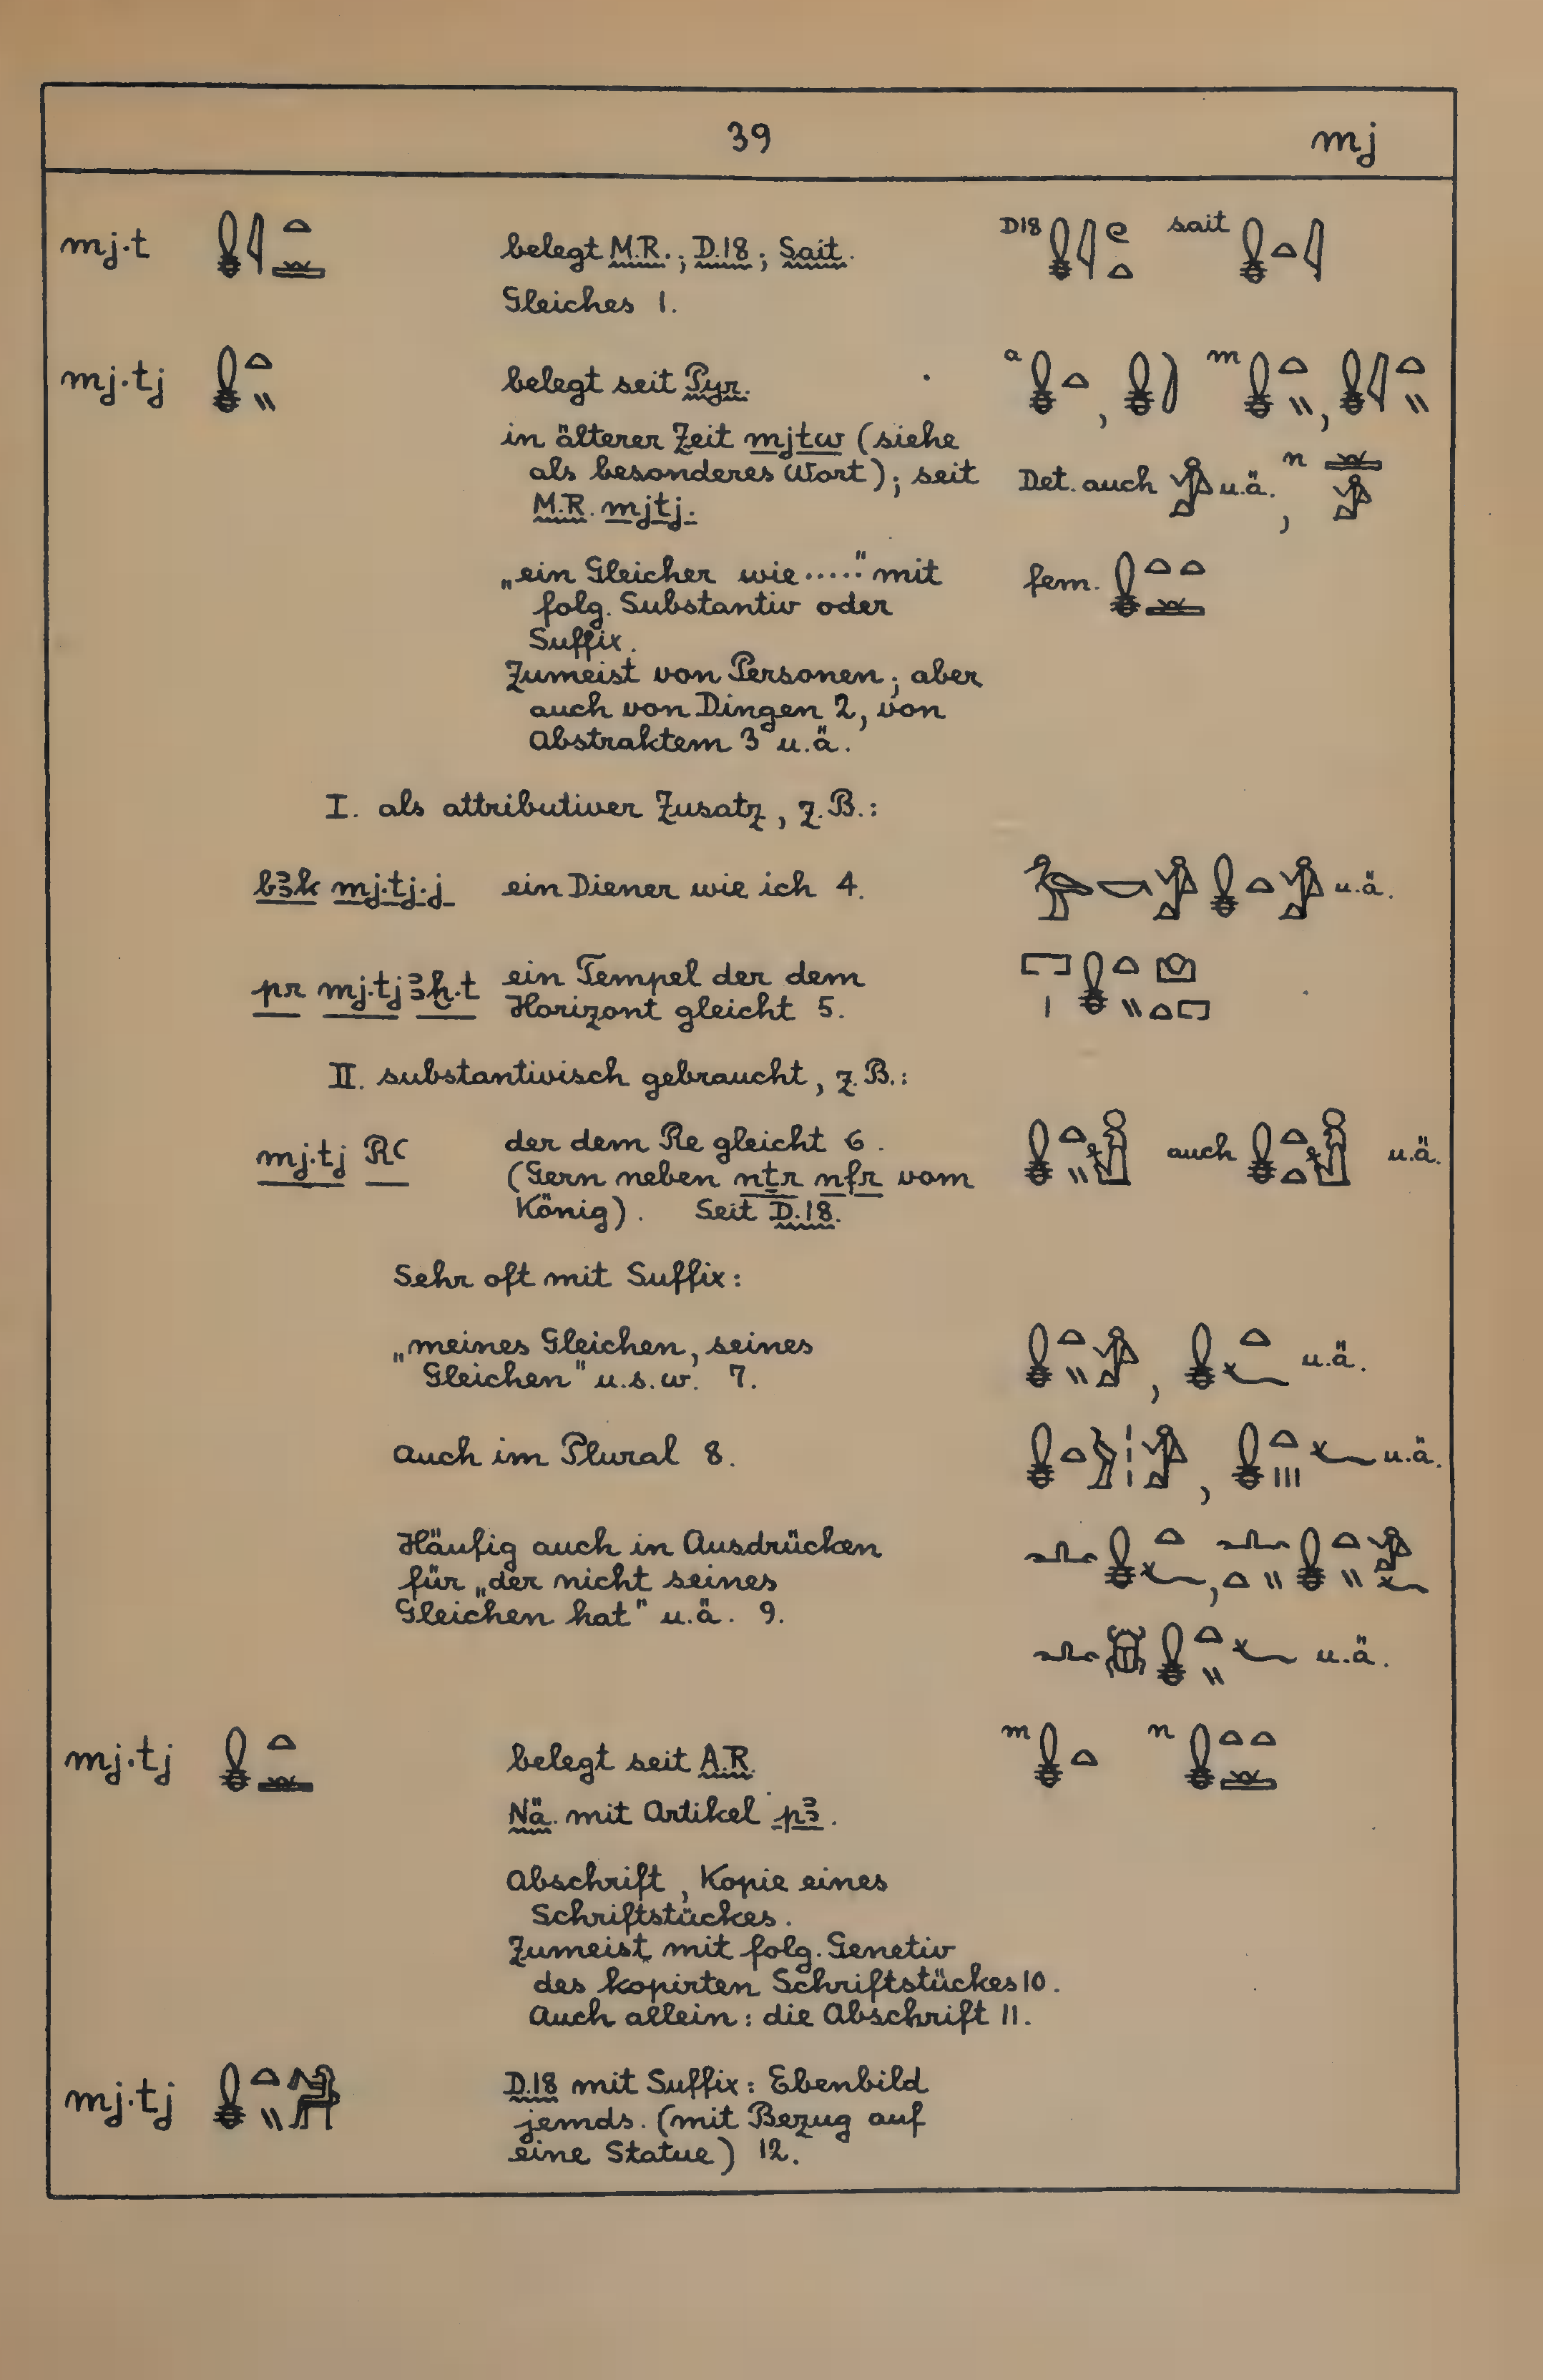 39 mj
mj·t belegt M.R.; D.18; Sait. D18 sait
Gleiches 1.
mj·tj belegt seit Pyr. a , m ,
in älterer Zeit mjtw (siehe
als besonderes Wort); seit Det. auch u.ä., n
M.R. mjtj.
„ein Gleicher wie ....." mit fem.
folg. Substantiv oder
Suffix.
Zumeist von Personen; aber
auch von Dingen 2, von
Abstraktem 3 u.ä.
I. als attributiver Zusatz, z.B.:
bꜣk mj·tj·j ein Diener wie ich 4. u.ä.
pr mj·tj ꜣḫ·t ein Tempel der dem
Horizont gleicht 5.
II. substantivisch gebraucht, z.B.:
mj·tj Rꜥ der dem Re gleicht 6. auch u.ä.
(Gern neben nṯr nfr vom
König). Seit D.18.
Sehr oft mit Suffix:
„meines Gleichen, seines
Gleichen" u.s.w. 7. , u.ä.
Auch im Plural 8. , u.ä.
Häufig auch in Ausdrücken
für „der nicht seines ,
Gleichen hat" u.ä. 9.
u.ä.
mj·tj belegt seit A.R. m n
Nä. mit Artikel pꜣ.
Abschrift, Kopie eines
Schriftstückes.
Zumeist mit folg. Genetiv
des kopirten Schriftstückes 10.
Auch allein: die Abschrift 11.
mj·tj D.18 mit Suffix: Ebenbild
jemds. (mit Bezug auf
eine Statue) 12.